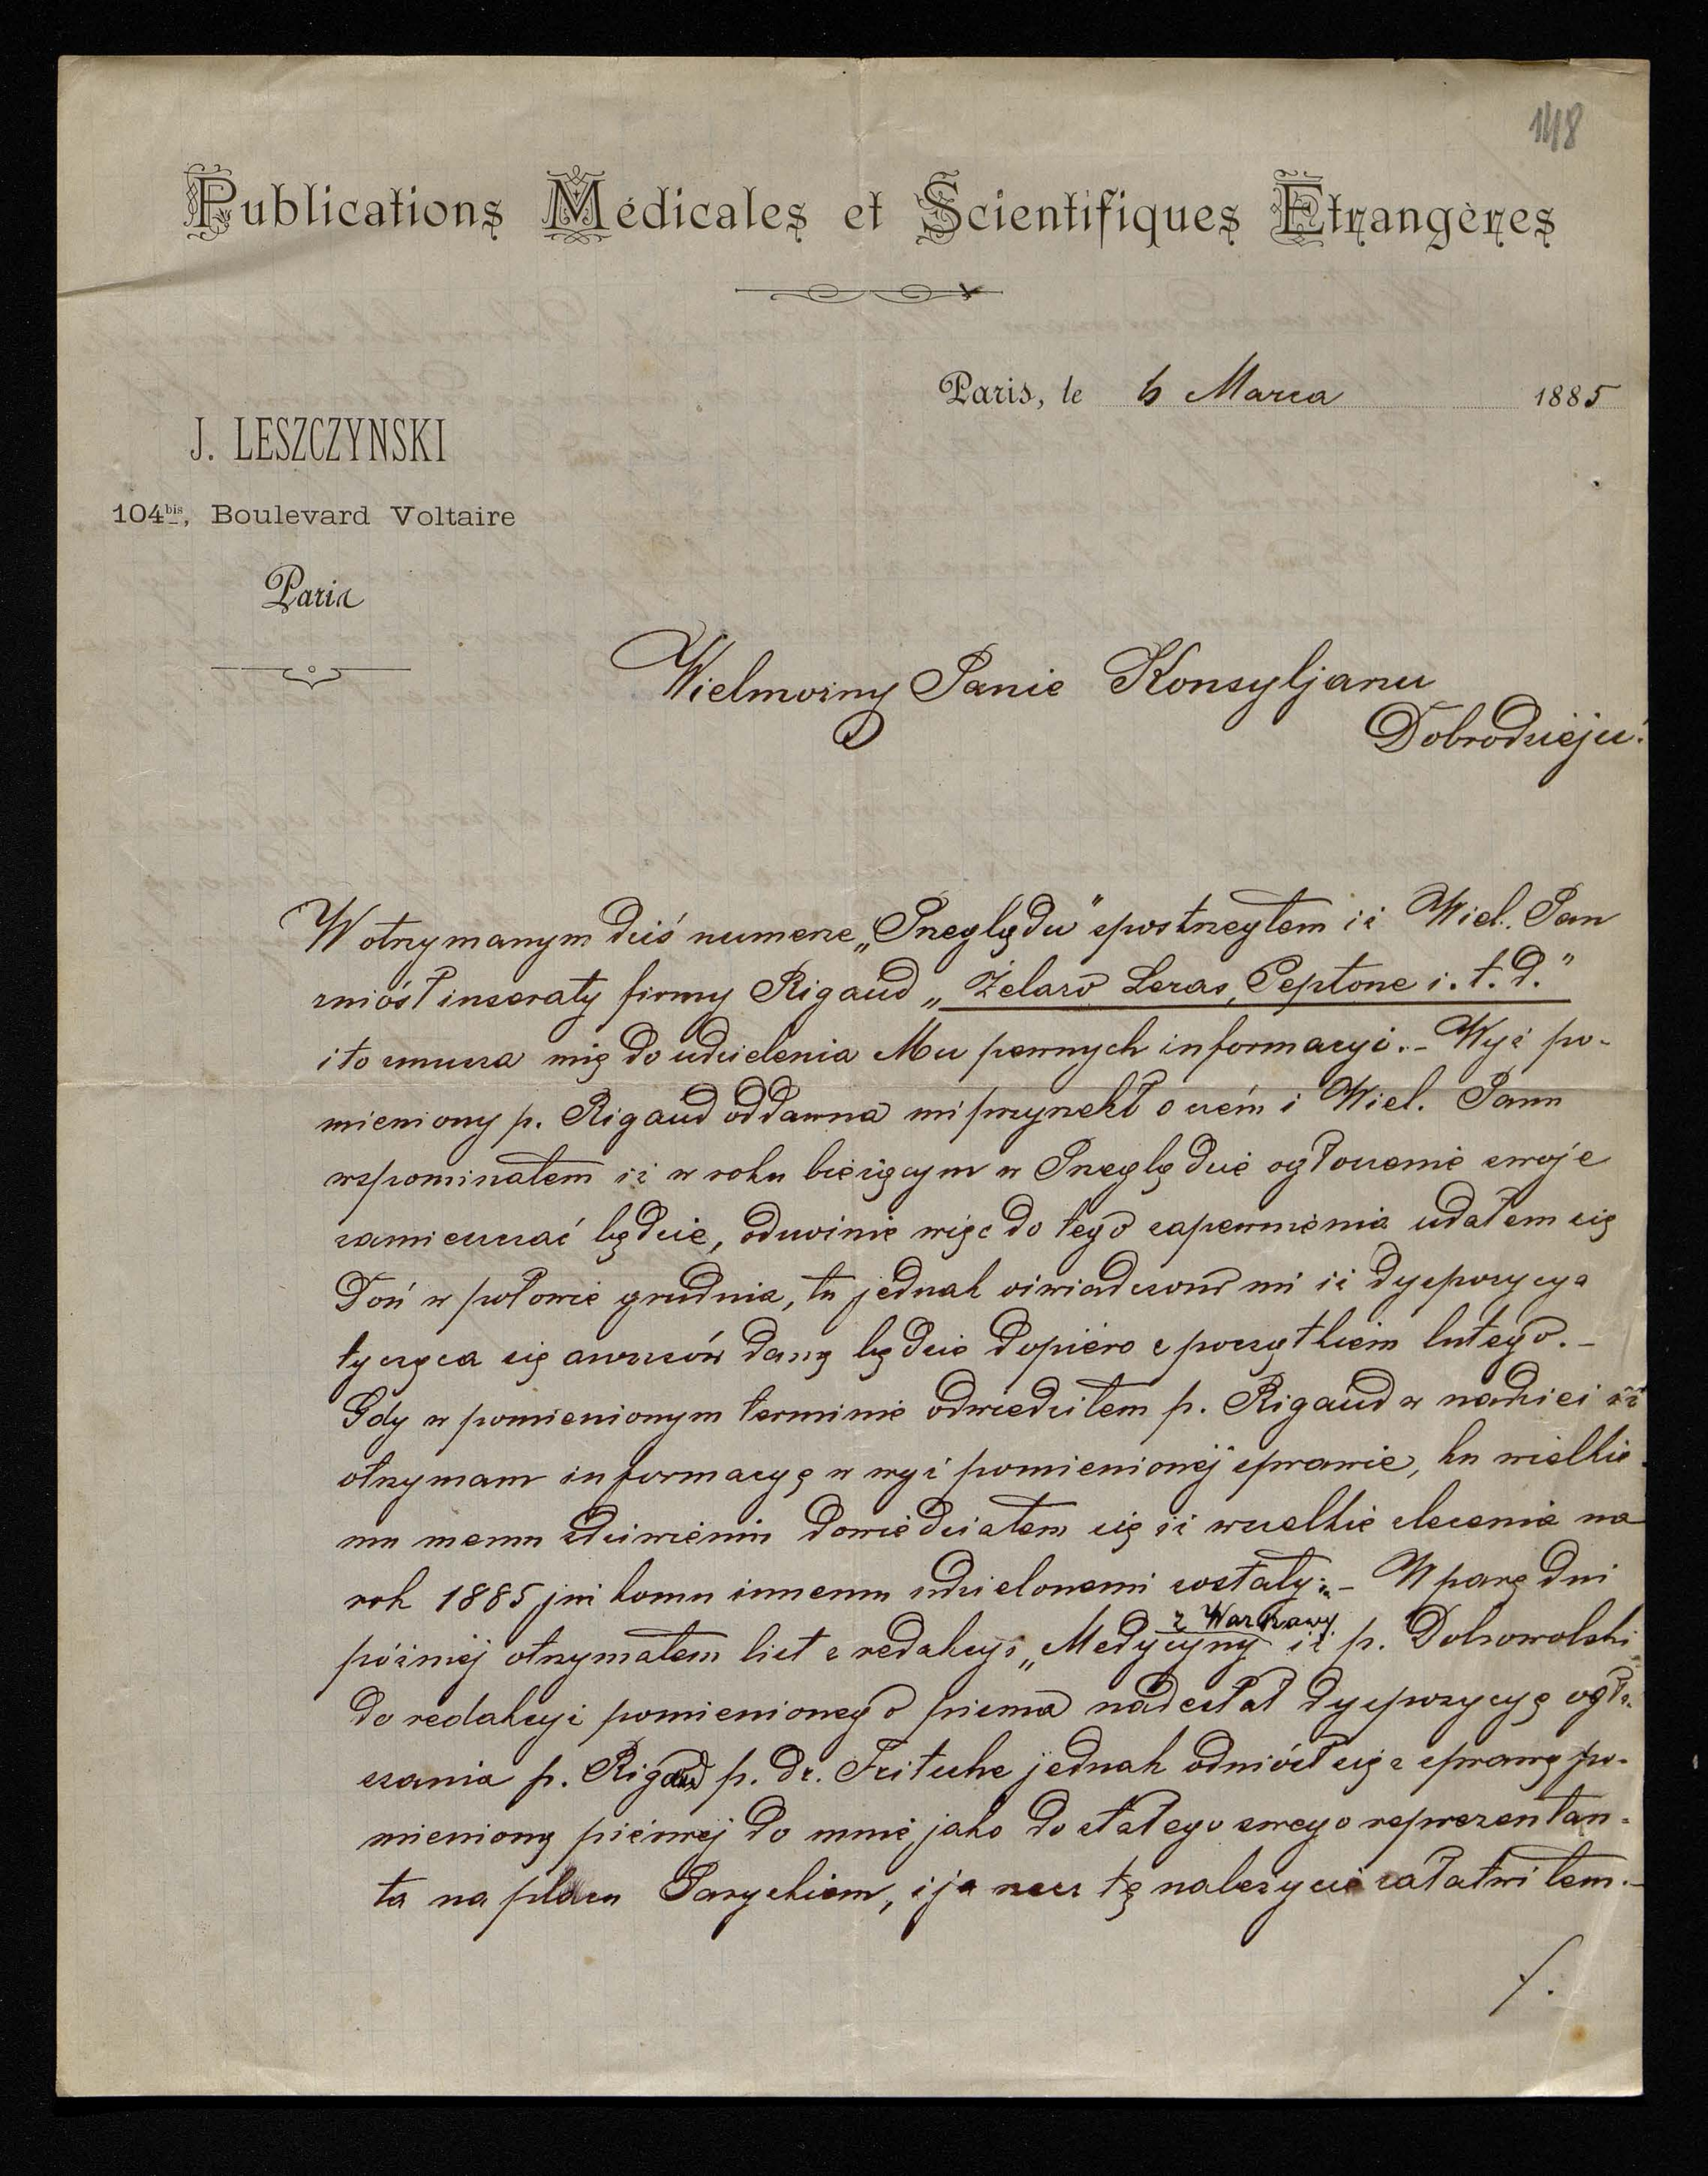 148
Publications Médicales et Scientifiques Etrangères
Paris, le 6 Marca 1885
J. LESZCZYNSKI
104bis, Boulevard Voltaire
Paris
Wielmożny Panie Konsyljarzu
Dobrodzieju!
W otrzymanym dziś numerze „Przeglądu" spostrzegłem iż Wiel. Pan
zniósł inseraty firmy Rigaud „Żelazo Leras, Peptone i. t. d."
i to zmusza mię do udzielenia Mu pewnych informacyi. - Wyż po-
mieniony p. Rigaud oddawna mi przyrzekł o czém i Wiel. Panu
wspominałem iż w roku bieżącym w Przeglądzie ogłoszenie swoje
zamieszczać będzie, odnośnie więc do tego zapewnienia udałem się
Doń w połowie grudnia, tu jednak oświadczono mi iż dyspozycya
tycząca się anonsów daną będzie dopiero z początkiem lutego. -
Gdy w pomienionym terminie odwiedziłem p. Rigaud w nadziei iż
otrzymam informacyę w wyż pomienionéj sprawie, ku wielkie-
mu memu zdziwieniu dowiedziałem się iż wszelkie zlecenia na
rok 1885 już komu innemu udzielonemi zostały. - W parę dni
późniéj otrzymałem list z redakcyi „Medycyny z Warszawy iż p. Dobrowolski
do redakcyi pomienionego pisma nadesłał dyspozycyę ogła-
szania p. Rigaud p. dr. Fritsche jednak odniósł się z sprawą po-
mienioną piérwéj do mnie, jako do stałego swego reprezentan-
ta na placu Paryskiem, i ja rzecz tę należycie załatwiłem. -
/.